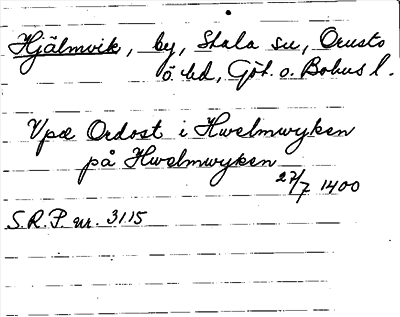 Hjälmvik, by, Stala sn, Orusts
ö. hd, Göt. o. Bohus l.
Vpæ Ordost i Hwælmwyken
på Hwælmwyken
27/7 1400
S.R.P. nr. 3115